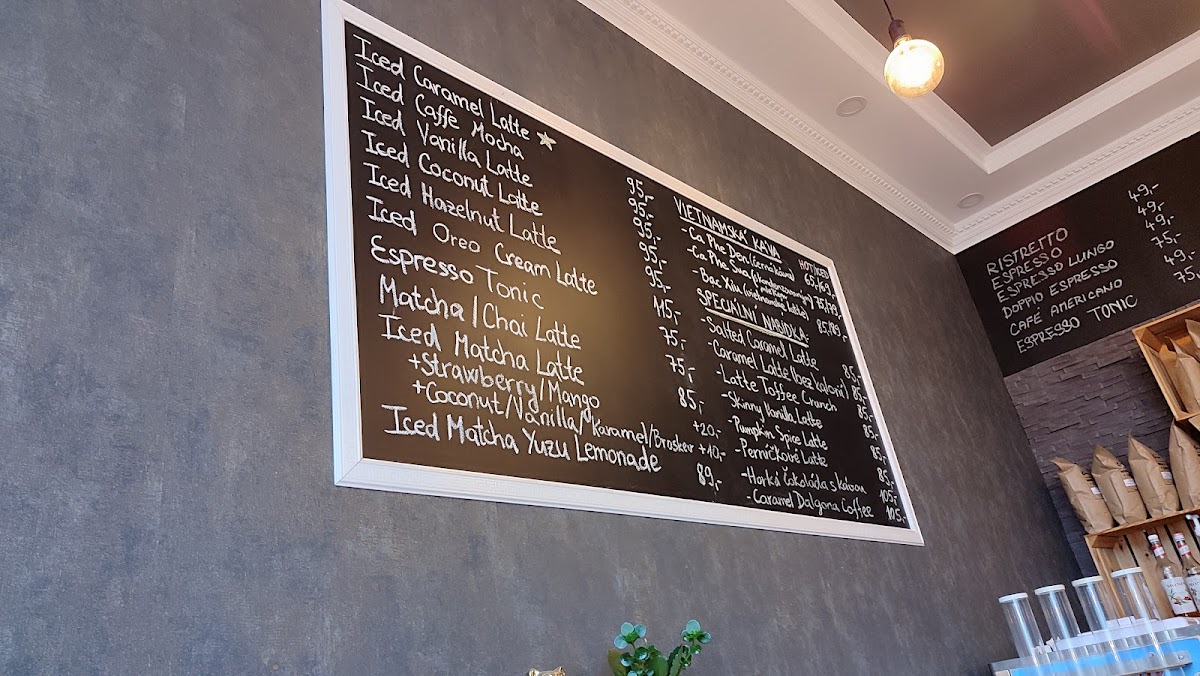 Iced Caramel Latte ☆ 95,-
Iced Caffe Mocha 95,-
Iced Vanilla Latte 95,-
Iced Coconut Latte 95,-
Iced Hazelnut Latte 95,-
Iced Oreo Cream Latte 115,-
Espresso Tonic 75,-
Matcha/Chai Latte 75,-
Iced Matcha Latte 85,-
+Strawberry/Mango +20,-
+Coconut/Vanilla/Karamel/Broskev +10,-
Iced Matcha Yuzu Lemonade 89,-
VIETNAMSKÁ KÁVA HOT/ICED
- Ca Phe Den (černá káva) 65,/69,-
- Ca Phe Sua 75,/79,-
- Bac Xiu (vietnamský latte) 85,/89,-
SPECIÁLNÍ NABÍDKA:
- Salted Caramel Latte 85,-
- Caramel Latte (bez kalorií) 85,-
- Latte Toffee Crunch 85,-
- Skinny Vanilla Latte 85,-
- Pumpkin Spice Latte 85,-
- Perníčkové Latte 85,-
- Horká čokoláda s kávou 105,-
- Caramel Dalgona Coffee 105,-
RISTRETTO 49,-
ESPRESSO 49,-
ESPRESSO LUNGO 49,-
DOPPIO ESPRESSO 75,-
CAFÉ AMERICANO 49,-
ESPRESSO TONIC 75